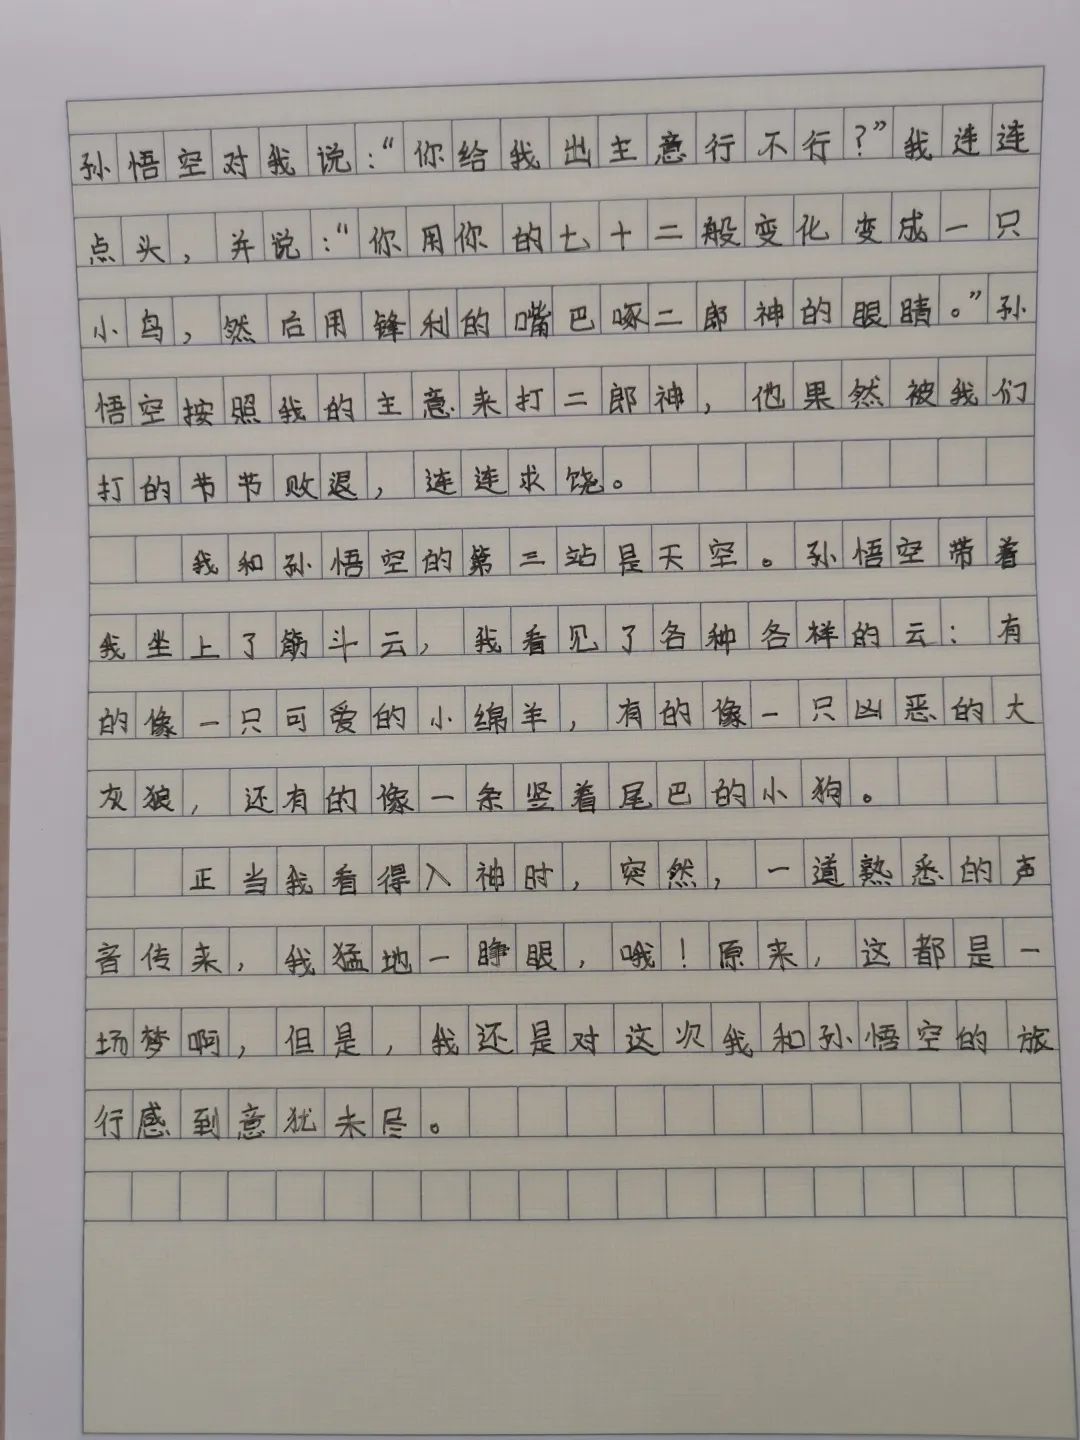 孙悟空对我说：“你给我出主意行不行？”我连连
点头，并说：“你用你的七十二般变化变成一只
小鸟，然后用锋利的嘴巴啄二郎神的眼睛。”孙
悟空按照我的主意来打二郎神，他果然被我们
打的节节败退，连连求饶。
我和孙悟空的第三站是天空。孙悟空带着
我坐上了筋斗云，我看见了各种各样的云：有
的像一只可爱的小绵羊，有的像一只凶恶的大
灰狼，还有的像一条竖着尾巴的小狗。
正当我看得入神时，突然，一道熟悉的声
音传来，我猛地一睁眼，哦！原来，这都是一
场梦啊，但是，我还是对这次我和孙悟空的旅
行感到意犹未尽。